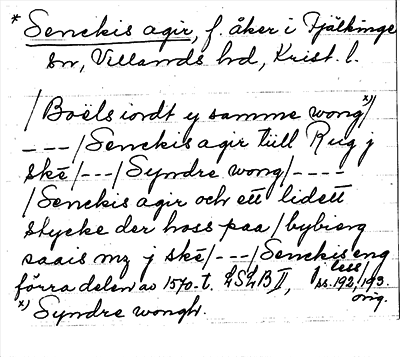 * Senekis agir, f. åker i Fjälkinge
sn, Villands hd, Krist. l.
/Boëls iordt y samme wong x)/
---/Senekis agir tiill Rug j
skē/---/Syndre wong/----
/Senekis agir och ett lidett
stycke der hoss paa/bybierg
saais mz j skē/---/Senekis eng
förra delen av 1570-t. LSLB II, ss. 192, 193.
orig.
x) Syndre wongh.